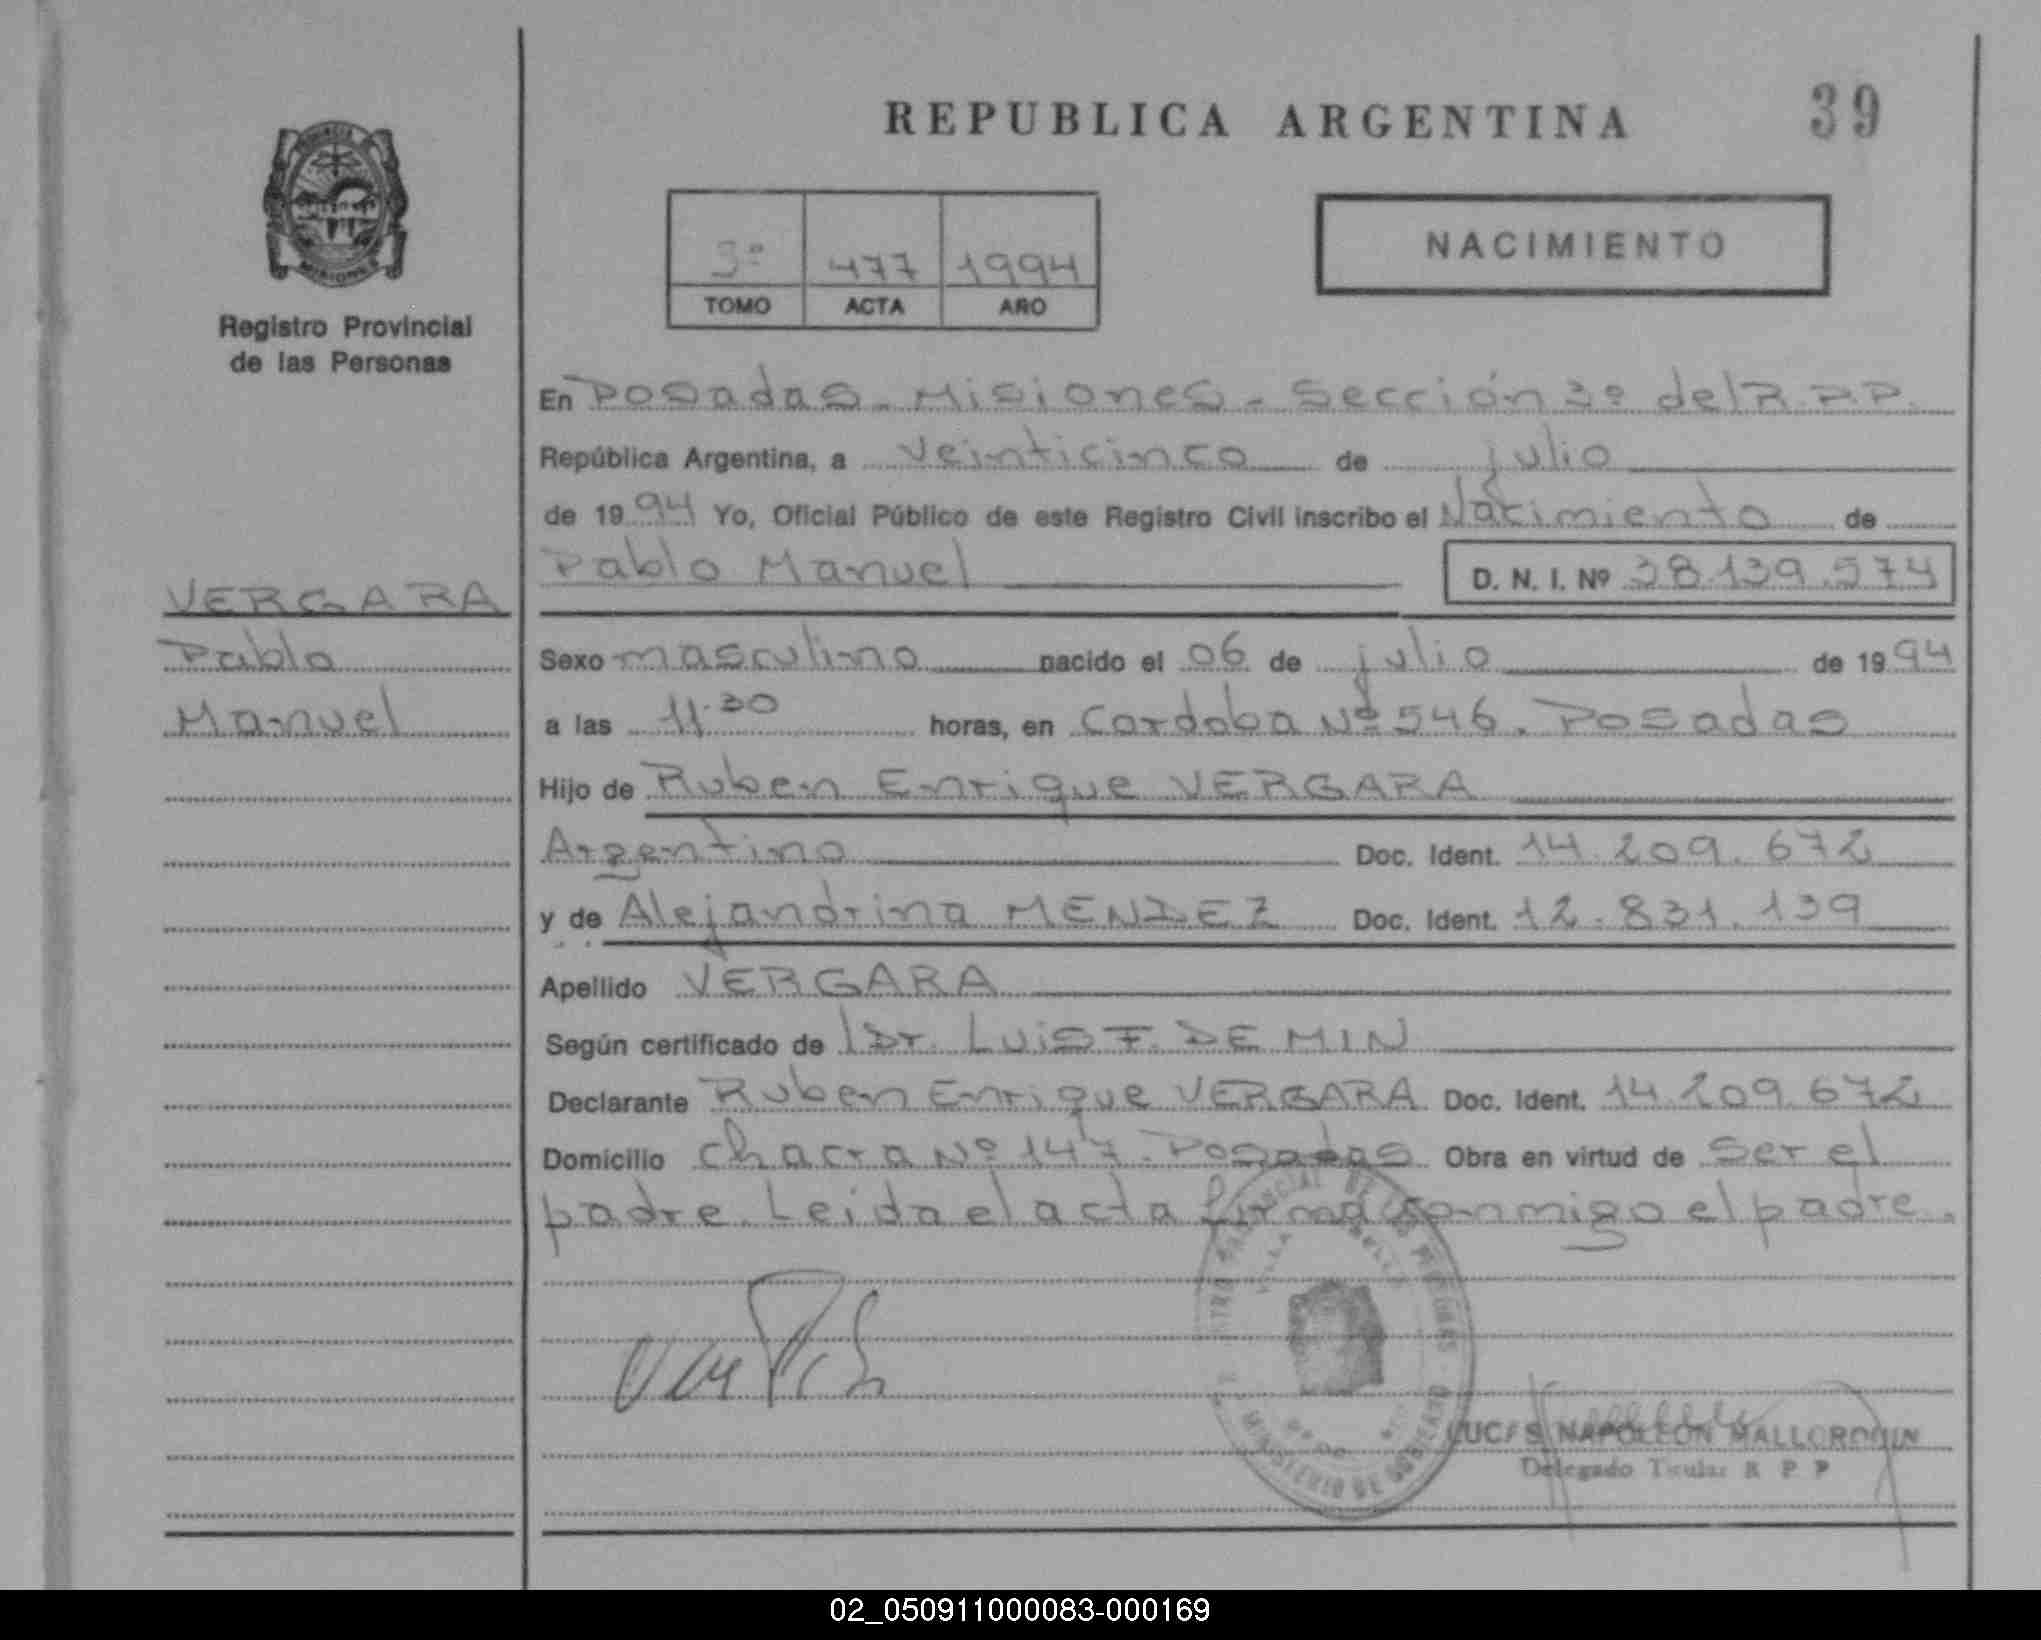 REPUBLICA ARGENTINA
39
PROVINCIA
MISIONES
Registro Provincial
de las Personas
3º 477 1994
TOMO ACTA AÑO
NACIMIENTO
En Posadas - Misiones - Sección 3º del R.P.P.
República Argentina, a veinticinco de julio
de 1994 Yo, Oficial Público de este Registro Civil inscribo el Nacimiento de
Pablo Manuel D. N. I. Nº 38.139.574
VERGARA
Pablo
Manuel
Sexo masculino nacido el 06 de julio de 1994
a las 11.30 horas, en Cordoba Nº 546. Posadas
Hijo de Ruben Enrique VERGARA
Argentino Doc. Ident. 14.209.672
y de Alejandrina MENDEZ Doc. Ident. 12.831.139
Apellido VERGARA
Según certificado de l Dr. LUIS F. DE MIN
Declarante Ruben Enrique VERGARA Doc. Ident. 14.209.672
Domicilio chacra Nº 147. Posadas Obra en virtud de ser el
padre. Leida el acta firma conmigo el padre.
PROVINCIAL DE LAS PERSONAS
MINISTERIO DE GOBIERNO
LUCAS NAPOLEON MALLORQUIN
Delegado Titular R P P
02_050911000083-000169